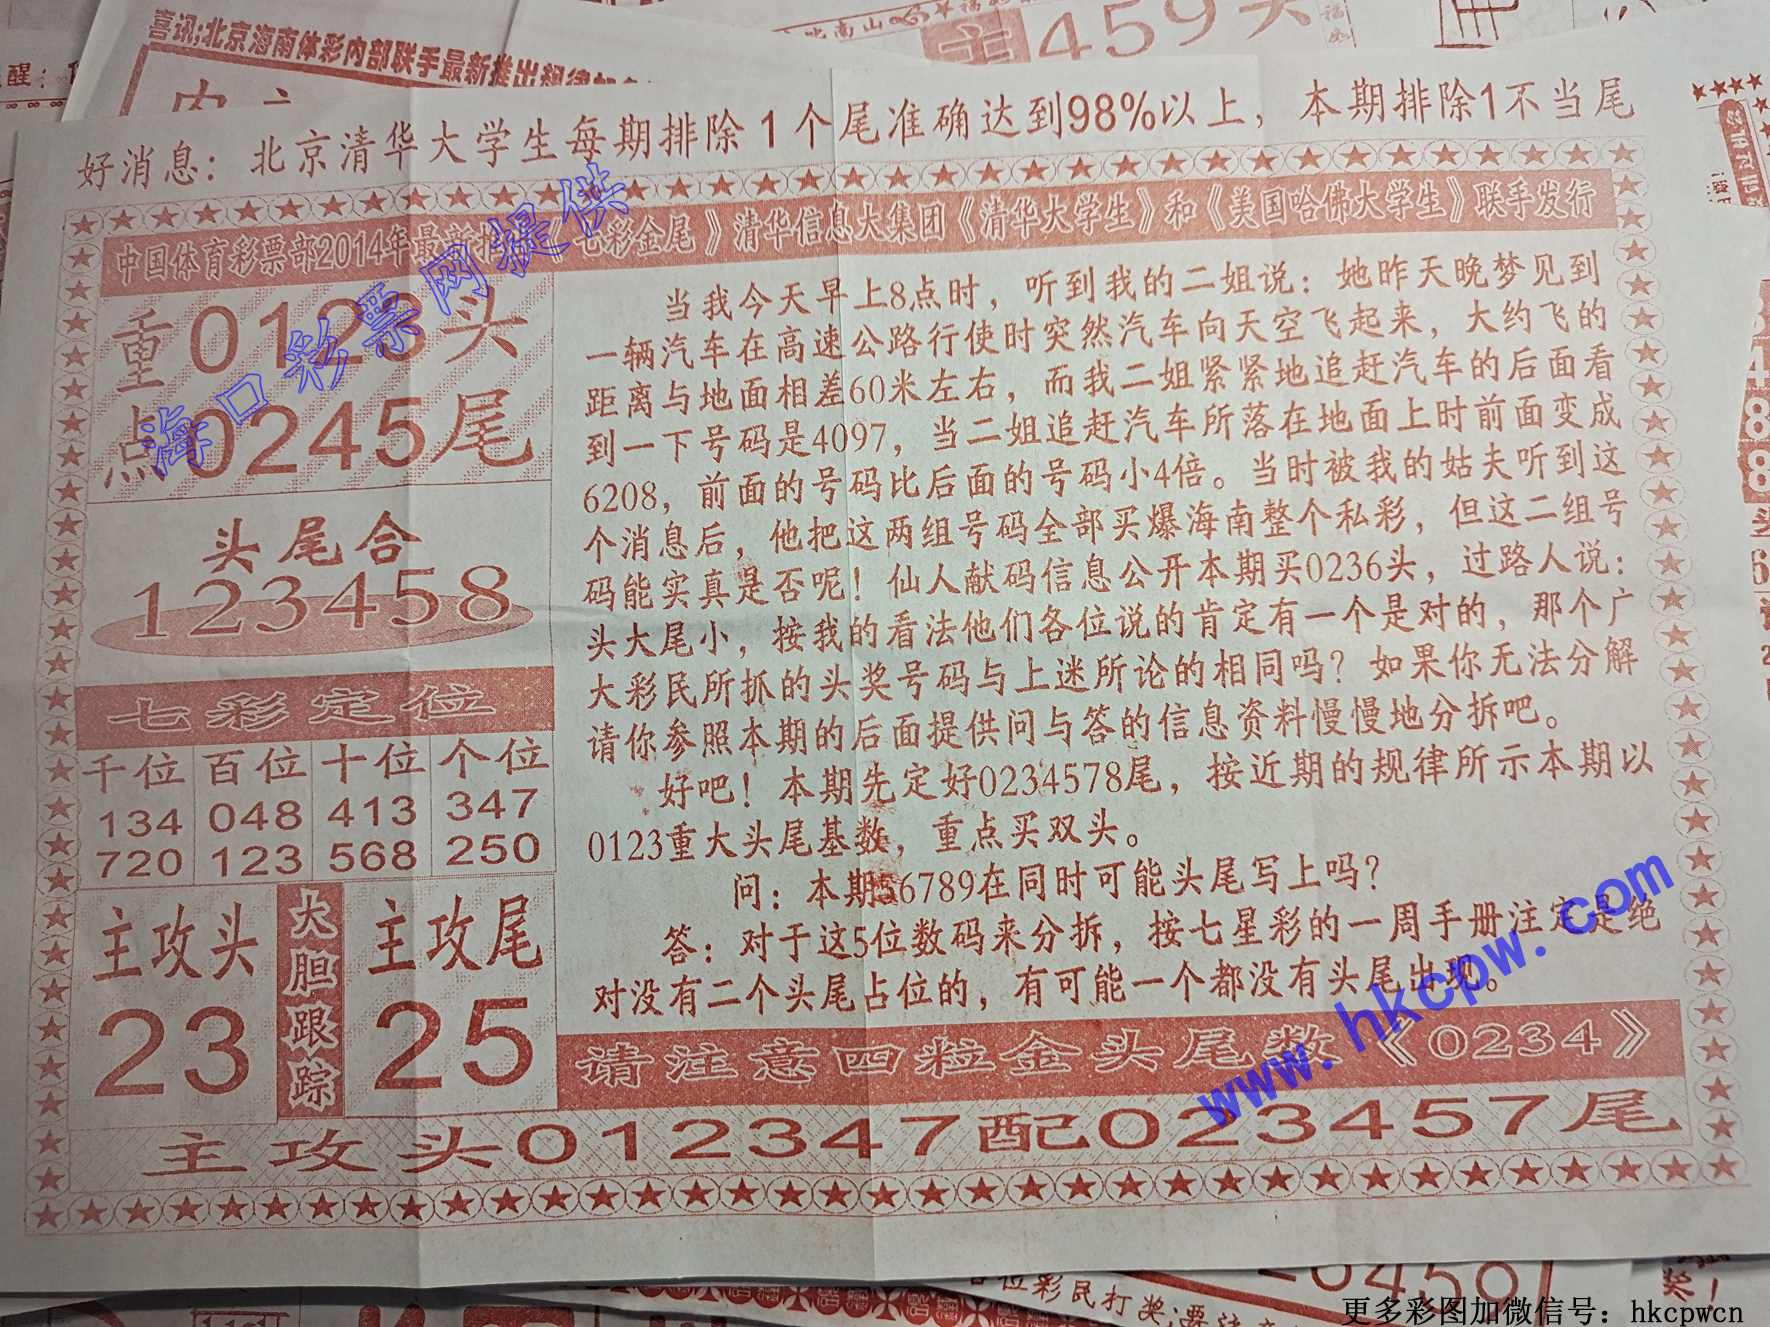 喜讯:北京海南体彩内部联手最新推出规律
主459头
好消息：北京清华大学生每期排除1个尾准确达到98%以上，本期排除1不当尾
中国体育彩票部2014年最新推《七彩金尾》清华信息大集团《清华大学生》和《美国哈佛大学生》联手发行
重点
0123头
0245尾
头尾合
123458
七彩定位
千位 百位 十位 个位
134 048 413 347
720 123 568 250
主攻头
23
大胆跟踪
主攻尾
25
当我今天早上8点时，听到我的二姐说：她昨天晚梦见到
一辆汽车在高速公路行使时突然汽车向天空飞起来，大约飞的
距离与地面相差60米左右，而我二姐紧紧地追赶汽车的后面看
到一下号码是4097，当二姐追赶汽车所落在地面上时前面变成
6208，前面的号码比后面的号码小4倍。当时被我的姑夫听到这
个消息后，他把这两组号码全部买爆海南整个私彩，但这二组号
码能实真是否呢！仙人献码信息公开本期买0236头，过路人说：
头大尾小，按我的看法他们各位说的肯定有一个是对的，那个广
大彩民所抓的头奖号码与上迷所论的相同吗？如果你无法分解
请你参照本期的后面提供问与答的信息资料慢慢地分拆吧。
好吧！本期先定好0234578尾，按近期的规律所示本期以
0123重大头尾基数，重点买双头。
问：本期56789在同时可能头尾写上吗？
答：对于这5位数码来分拆，按七星彩的一周手册注定是绝
对没有二个头尾占位的，有可能一个都没有头尾出现。
请注意四粒金头尾数《0234》
主攻头012347配023457尾
海口彩票网提供
www.hkcpw.com
各位彩民打奖;要注
奖！
更多彩图加微信号：hkcpwcn